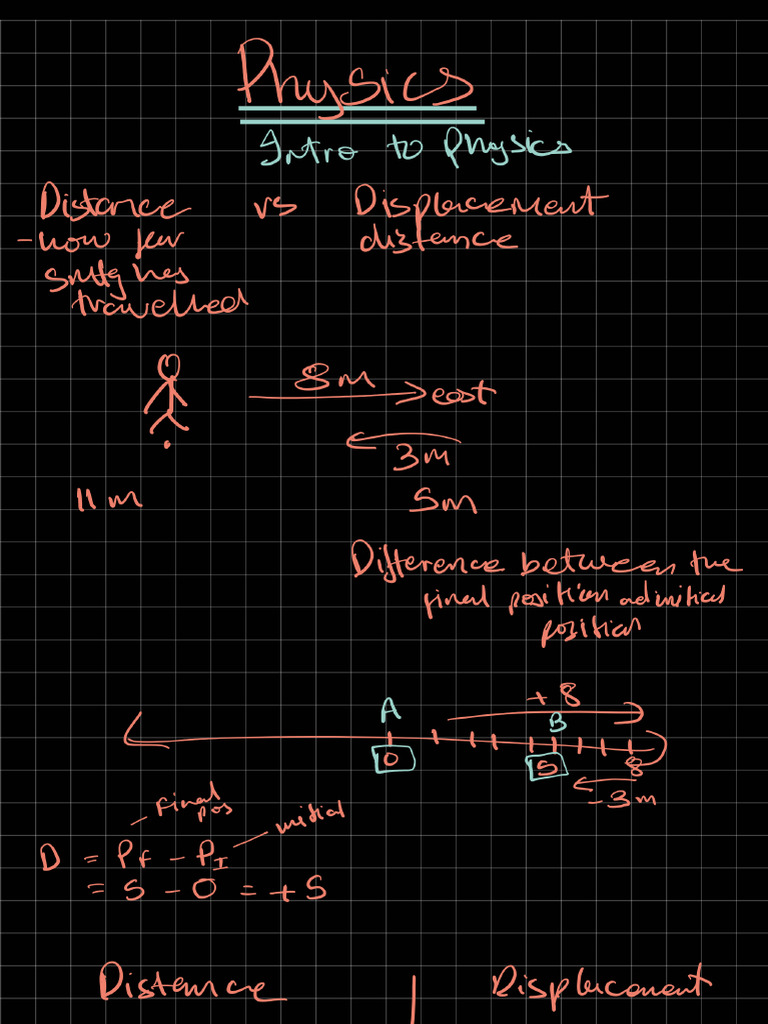 Physics
Intro to Physics
Distance vs Displacement
- how far distance
smtg has
travelled
8m
east
3m
11 m 5m
Difference between the
final position and initial
position
+ 8
A B
0 5 8
- 3m
final
pos
initial
D = PF - PI
= 5 - 0 = + 5
Distance Displacement